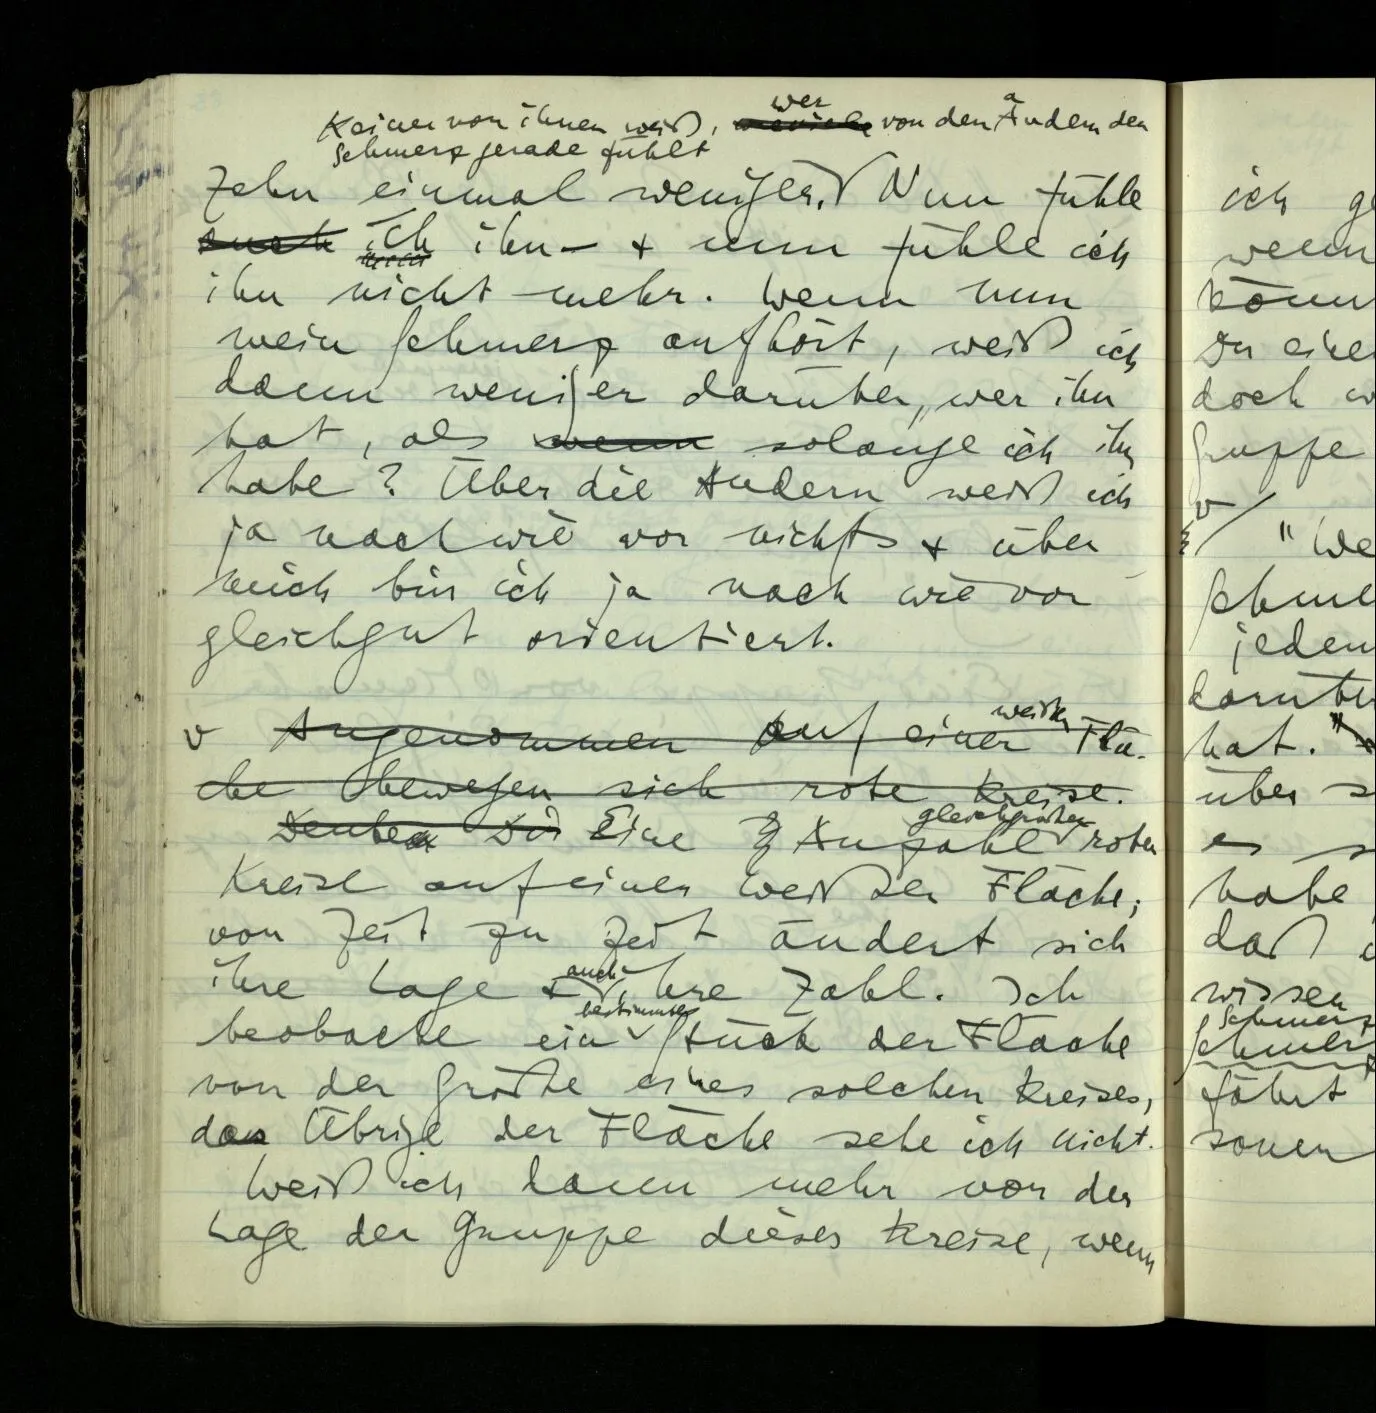 Keiner von ihnen weiß, wer von den Andern den
Schmerz gerade fühlt
Zehn einmal weniger. Nun fühle
auch ich ihn – & nun fühle ich
ihn nicht mehr. Wenn nun
mein Schmerz aufhört, weiß ich
dann weniger darüber, wer ihn
hat, als wenn solange ich ihn
habe? Über die Andern weiß ich
ja nach wie vor nichts & über
mich bin ich ja nach wie vor
gleichgut orientiert.
v Angenommen auf einer weißen Flä-
che bewegen sich rote Kreise.
Denke Dir Eine Anzahl gleichgroßer roter
Kreise auf einer weißen Fläche;
von Zeit zu Zeit ändert sich
ihre Lage & auch ihre Zahl. Ich
beobachte ein bestimmtes Stück der Fläche
von der Größe eines solchen Kreises,
das Übrige der Fläche sehe ich nicht.
Weiß ich dann mehr von der
Lage der Gruppe dieser Kreise, wenn
ich
wenn
doch
Gruppe
v
"We
jeden
hat."
über
es
habe
daß
wissen
Schmerz